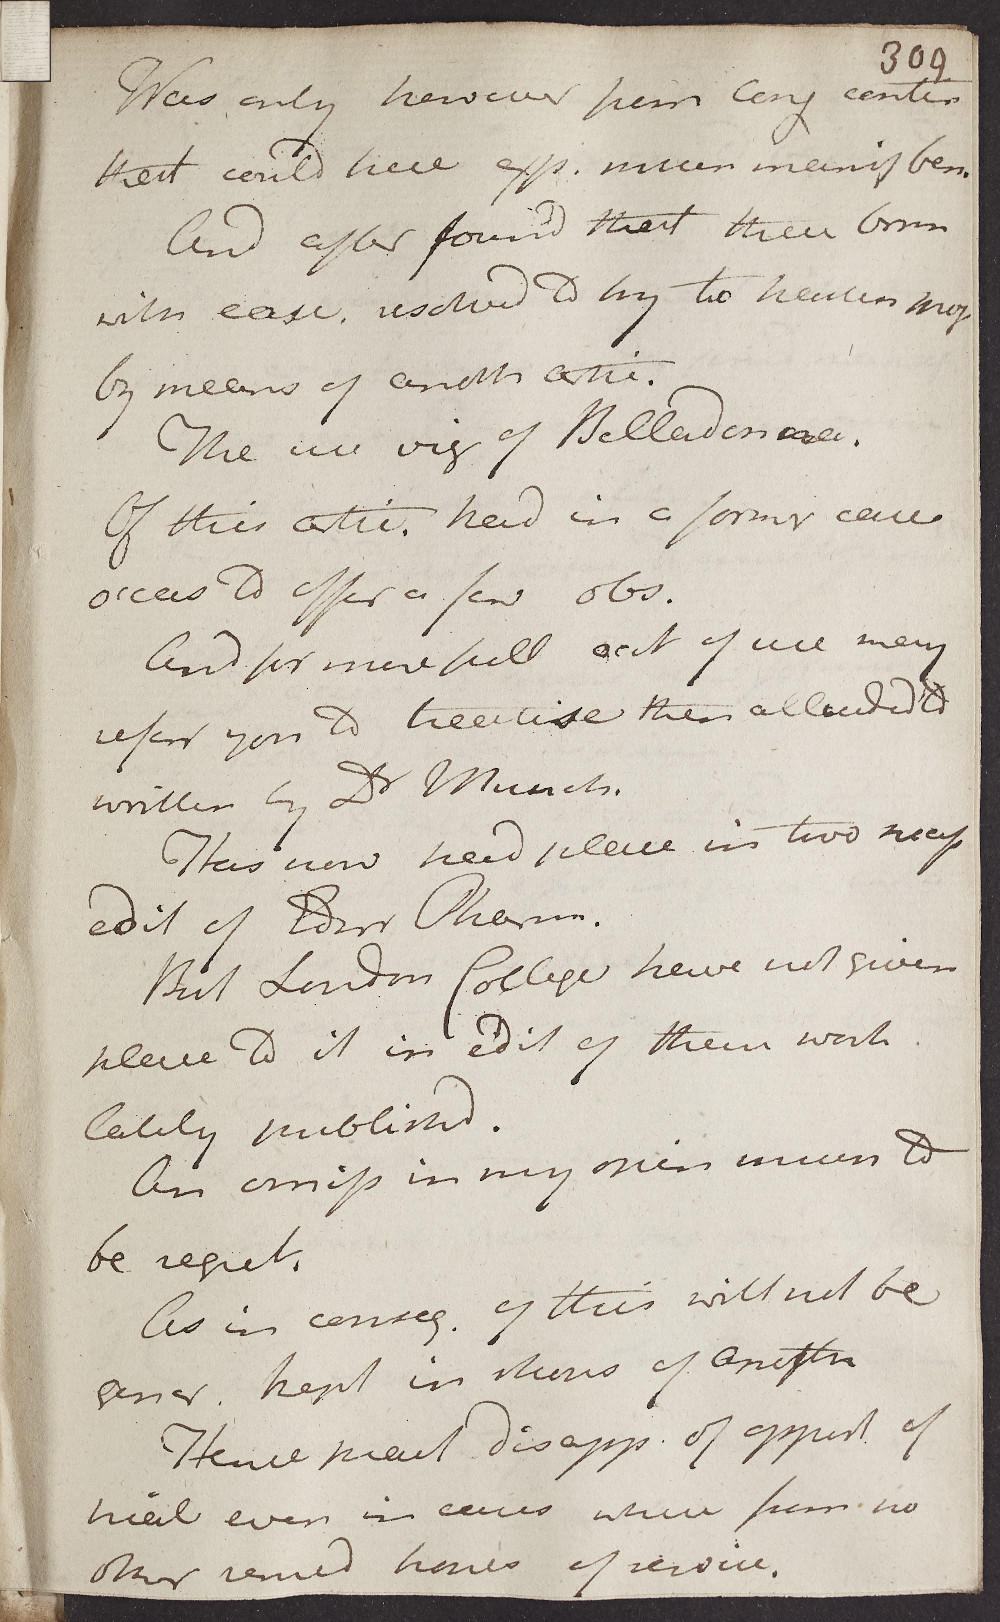 309
Was only however from long contin
that could have exp. much manif ben.
And after found that these born
with ease. resolved to try to hasten prog
by means of anoth artic.
The use viz of Belladonna.
Of this artic. had in a former case
occas to offer a few obs.
And for more full acct of use may
refer you to treatise then alluded to
written by Dr Munch.
Has now had place in two
edit of Edinr Pharm.
But London College have not given
place to it in edit of their work
lately published.
An omiss in my opin much to
be regret.
As in conseq. of this will not be
gener. kept in shops of
Hence pract disapp. of opport of
trial even in cases where from no
other remed hopes of service.